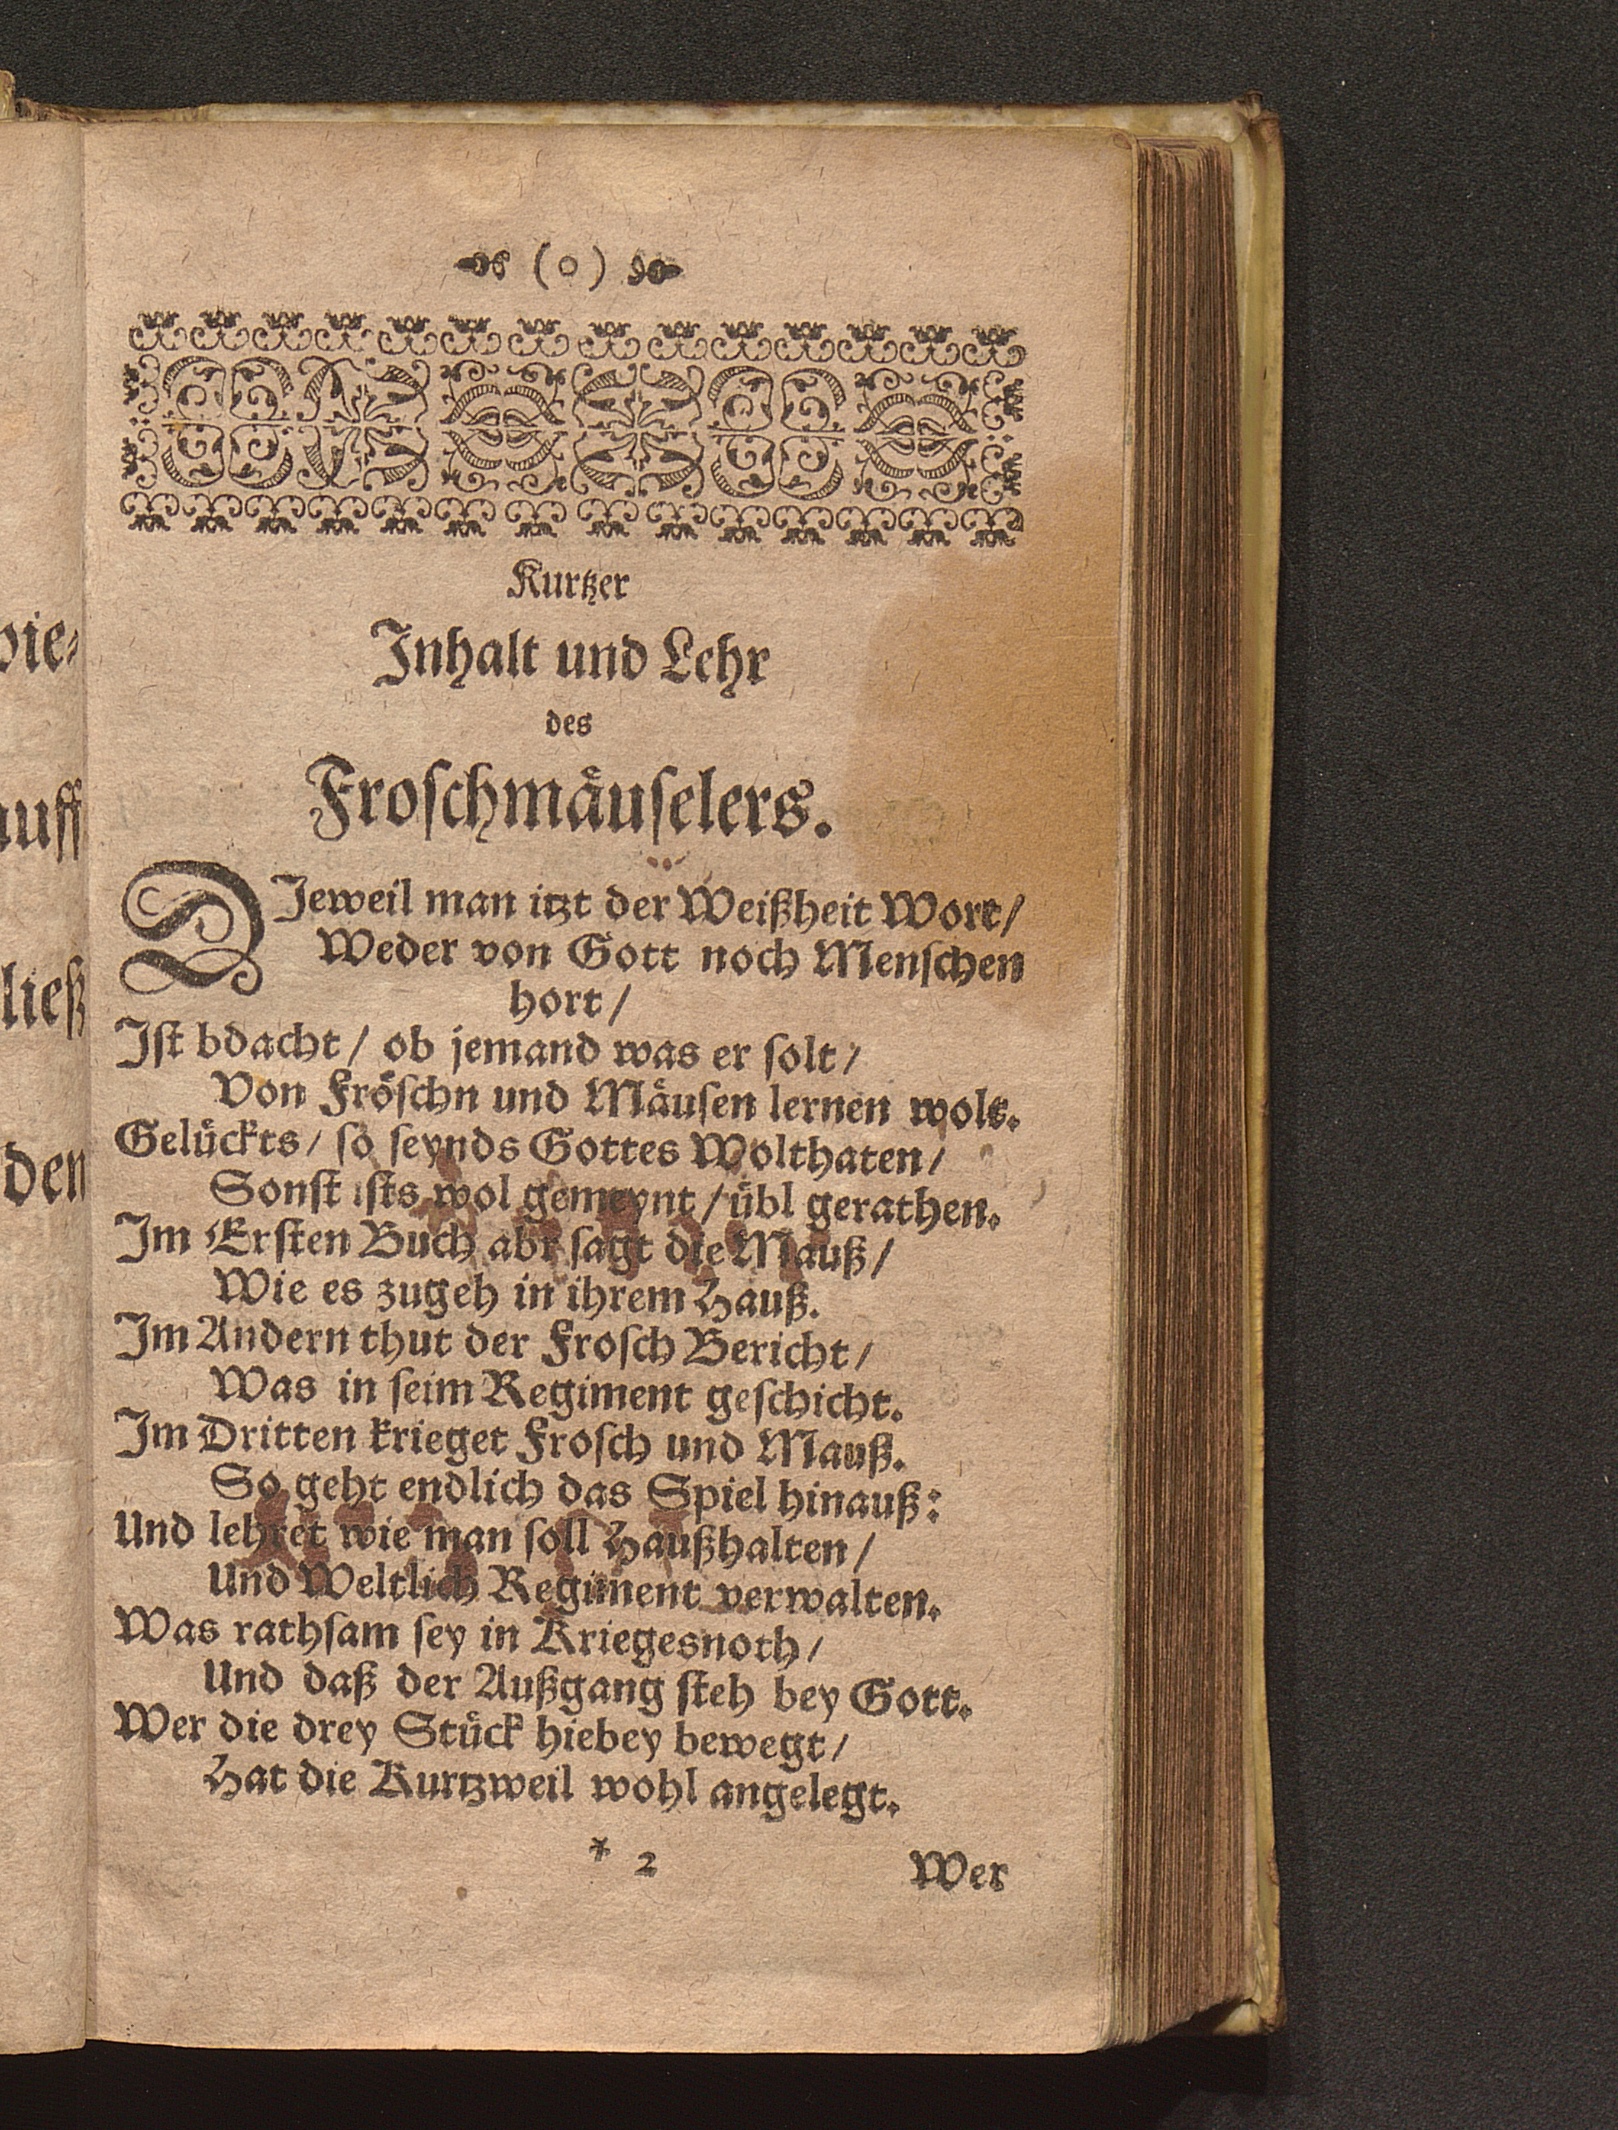 (o)
Kurtzer
Inhalt und Lehr
des
Froſchmaͤuſelers.
DJeweil man itzt der Weißheit Wort/
Weder von Gott noch Menſchen
hort/
Jſt bdacht/ ob jemand was er ſolt/
Von Froͤſchn und Maͤuſen lernen wolt.
Geluͤckts/ ſo ſeynds Gottes Wolthaten/
Sonſt iſts wol gemeynt/ uͤbl gerathen.
Jm Erſten Buch abr ſagt die Mauß/
Wie es zugeh in ihrem Hauß.
Jm Andern thut der Froſch Bericht/
Was in ſeim Regiment geſchicht.
Jm Dritten krieget Froſch und Mauß.
So geht endlich das Spiel hinauß:
Und lehret wie man ſoll Haußhalten/
Und Weltlich Regiment verwalten.
Was rathſam ſey in Kriegesnoth/
Und daß der Außgang ſteh bey Gott.
Wer die drey Stuͤck hiebey bewegt/
Hat die Kurtzweil wohl angelegt.
* 2 Wer